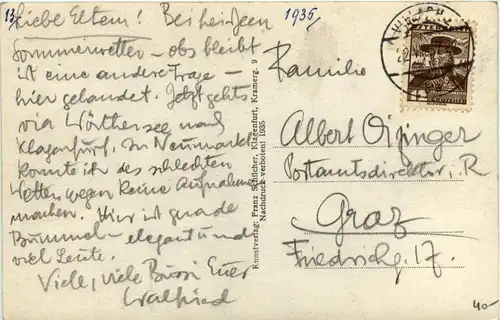 13/
1935
Liebe Eltern! Bei
Sommerwetter – obs bleibt
ist eine andere Frage –
hier gelandet. Jetzt gehts
via Wörthersee nach
Klagenfurt. In Neumarkt
konnte ich des schlechten
Wetters wegen keine Aufnahmen
machen. Hier ist gerade
Bummel – elegant und
viel Leute.
Viele, viele Bussi Euer
Walfried
Kunstverlag: Franz Schilcher, Klagenfurt, Kramerg. 9
Nachdruck verboten! 1935
VILLACH
Familie
Albert
Postamtsdirektor i. R
Graz
17.
40-